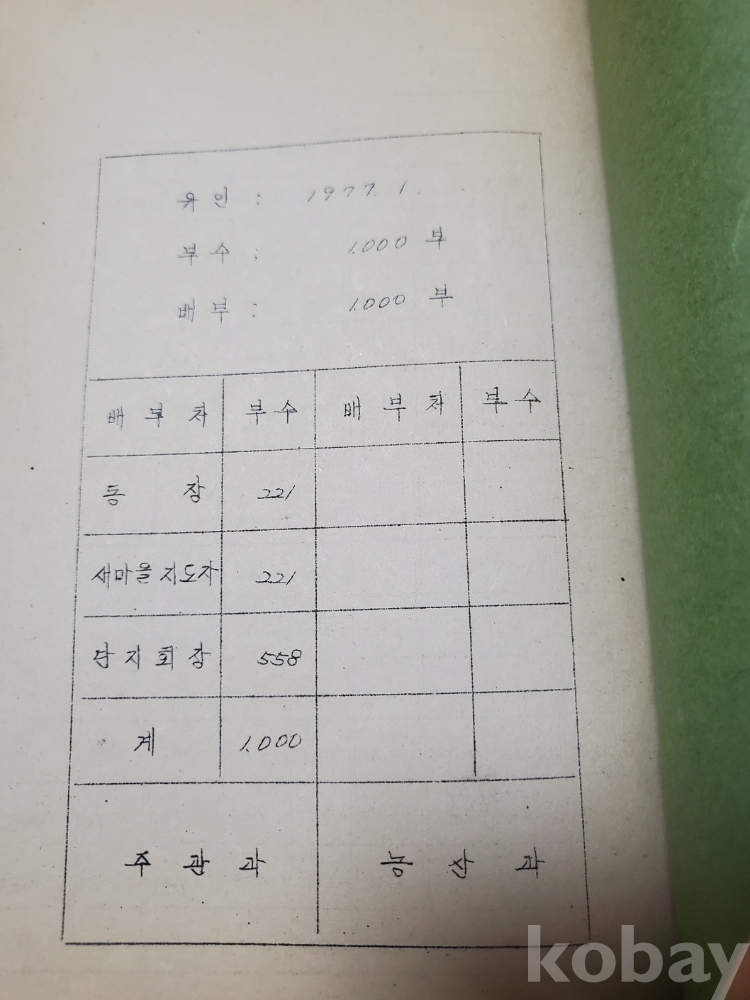 유인 : 1977. 1.
부수 : 1.000 부
배부 : 1.000 부
배부처 부수 배부처 부수
동장 221
새마을지도자 221
단지회장 558
계 1.000
주관과 농산과
kobay